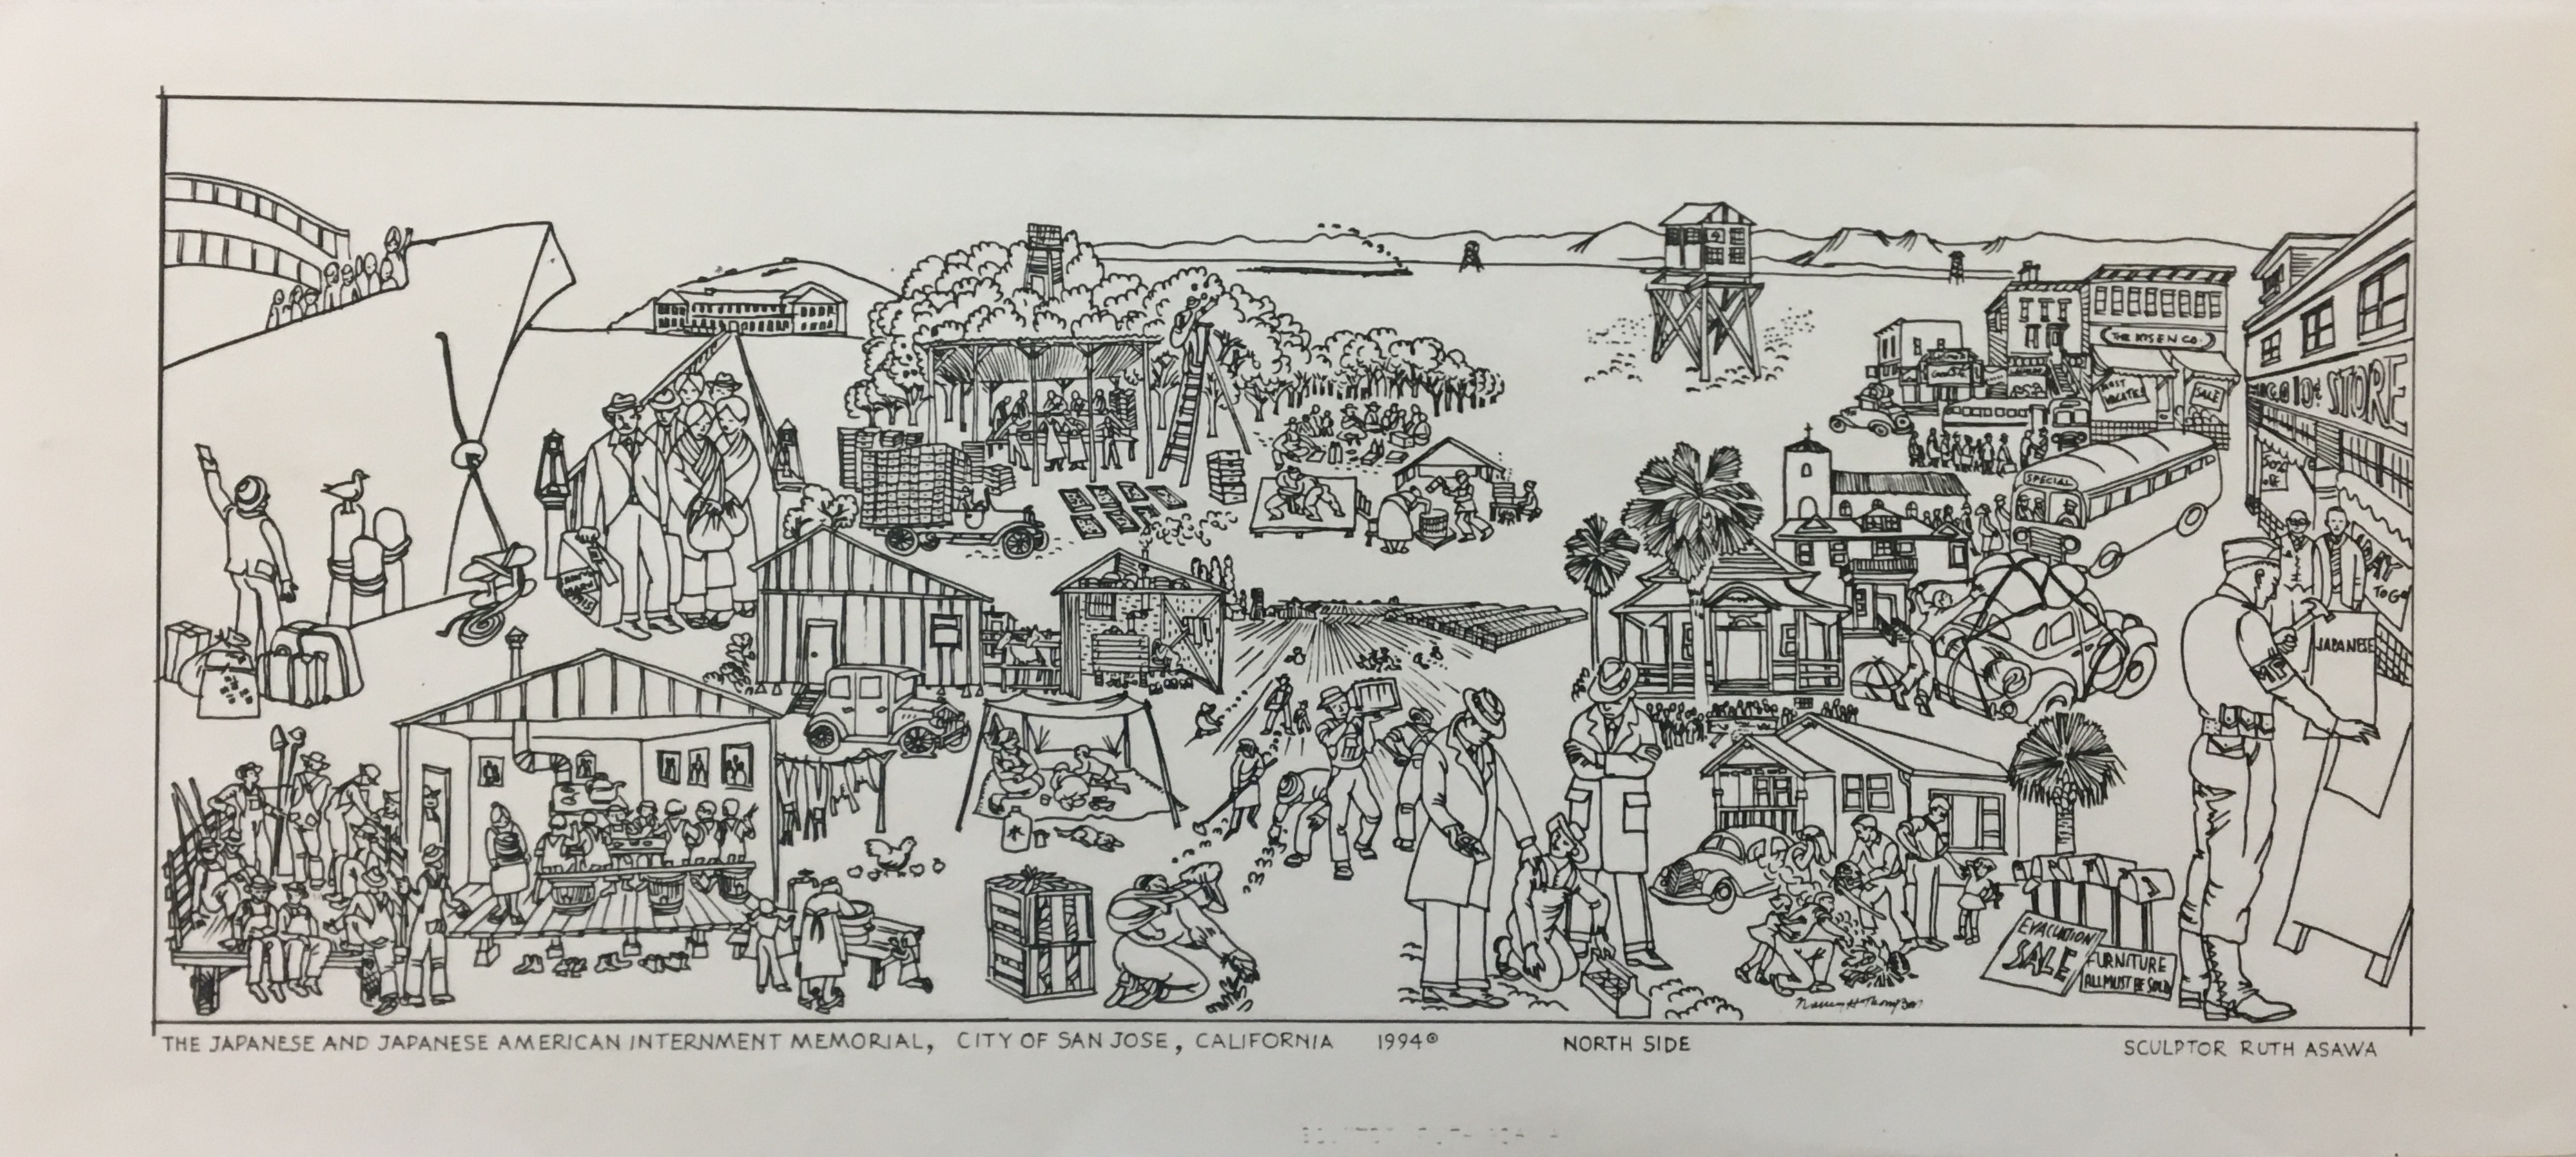 THE KISEN CO.
MUST VACATE
SALE
10¢ STORE
SPECIAL
50% OFF
TO GO
JAPANESE
MP
EVACUATION
SALE
FURNITURE
ALL MUST BE SOLD
Nancy H Thompson
THE JAPANESE AND JAPANESE AMERICAN INTERNMENT MEMORIAL, CITY OF SAN JOSE, CALIFORNIA 1994©
NORTH SIDE
SCULPTOR RUTH ASAWA